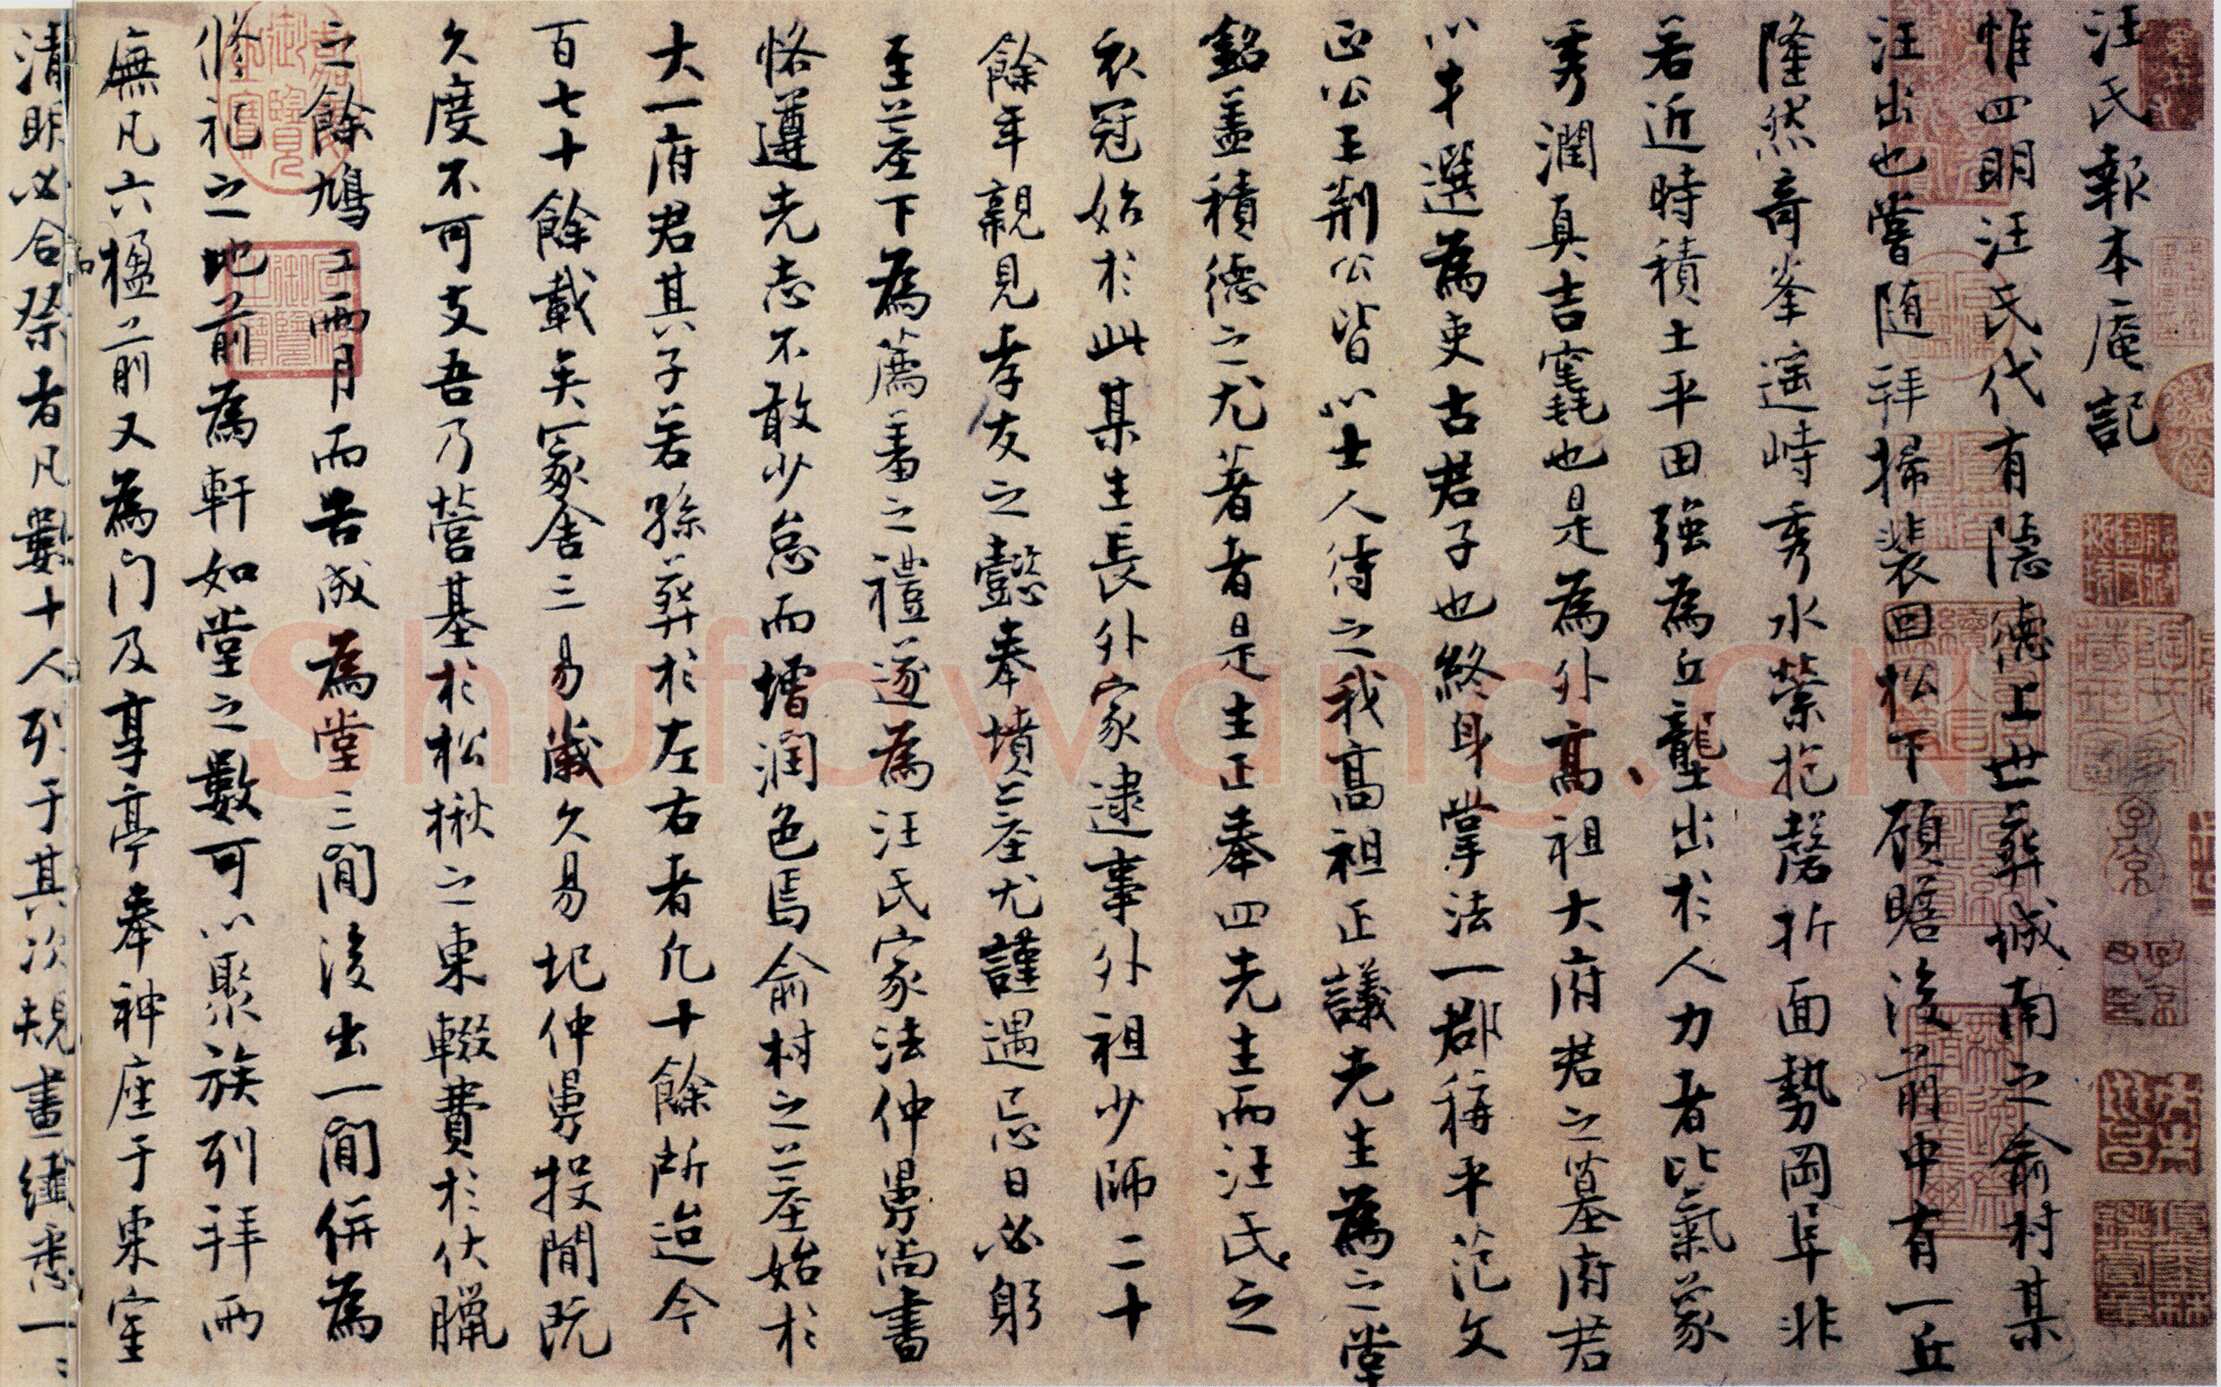 汪氏報本庵記
惟四明汪氏代有隱德上世葬城南之俞村某
汪出也嘗随拜掃裴回松下顧瞻後前中有一丘
隆然奇峯遥峙秀水縈抱磬折面勢岡阜非
若近時積土平田強為丘壟出於人力者比氣象
秀潤真吉窀也是為外高祖大府君之墓府君
以才選為吏古君子也終身掌法一郡稱平范文
正公王荆公皆以士人待之我高祖正議先生為之堂
銘盖積德之尤著者是生正奉四先生而汪氏之
衣冠始於此某生長外家逮事外祖少師二十
餘年親見孝友之懿奉墳墓尤謹遇忌日必躬
至墓下為薦羞之禮遂為汪氏家法仲舅尚書
恪遵先志不敢少怠而增潤色焉俞村之墓始於
大一府君其子若孫葬於左右者凡十餘所迨今
百七十餘載矣冢舍三易歲久易圮仲舅投閒既
久度不可支吾乃營基於松楸之東輟費於伏臘
之餘鳩工兩月而告成為堂三間後出一間併為
修祀之地前為軒如堂之數可以聚族列拜兩
廡凡六楹前又為門及享亭奉神座于東室
清明必合祭者凡數十人列于其次規畫纖悉一一
Shufawang.CN